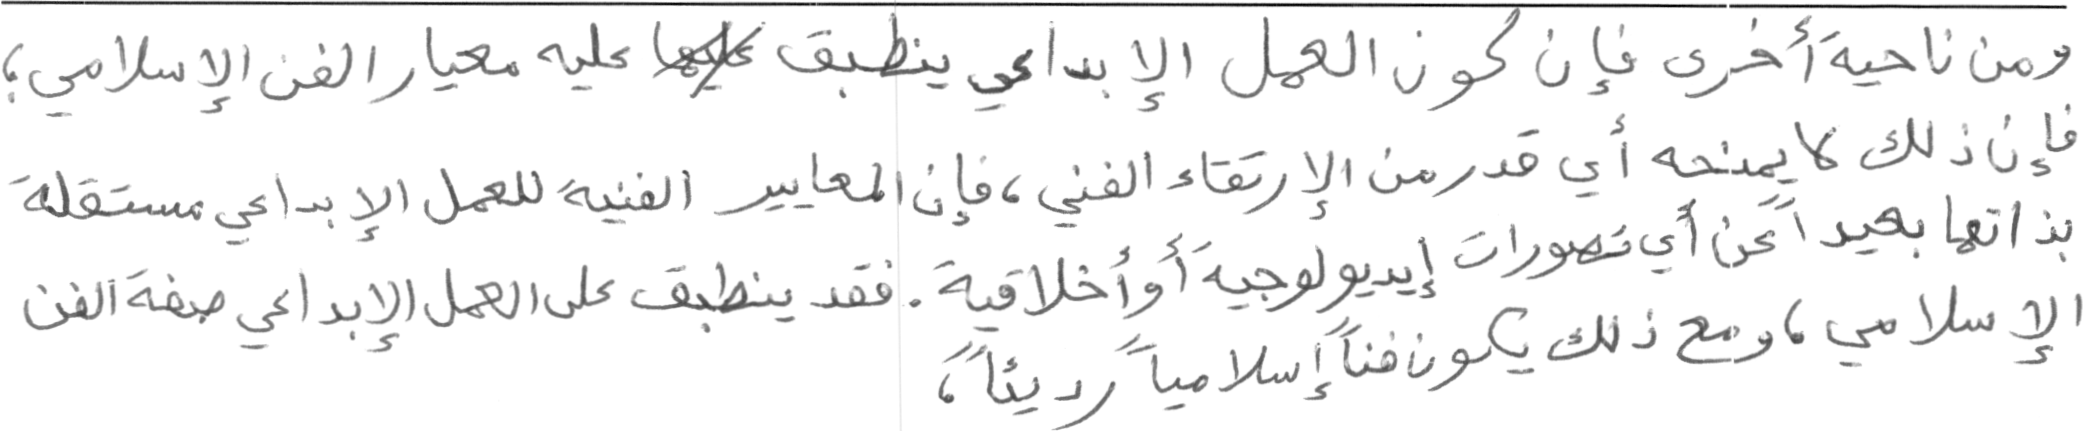 ومن ناحية أخرى فإن كون العمل الإبداعي ينطبق عليها عليه معيار الفن الإسلامي؛
فإن ذلك لا يمنحه أي قدر من الإرتقاء الفني، فإن المعايير الفنية للعمل الإبداعي مستقلة
بذاتها بعيداً عن أي تصورات إيديولوجية أو أخلاقية. فقد ينطبق على العمل الإبداعي صفة الفن
الإسلامي، ومع ذلك يكون فناً إسلامياً رديئاً،